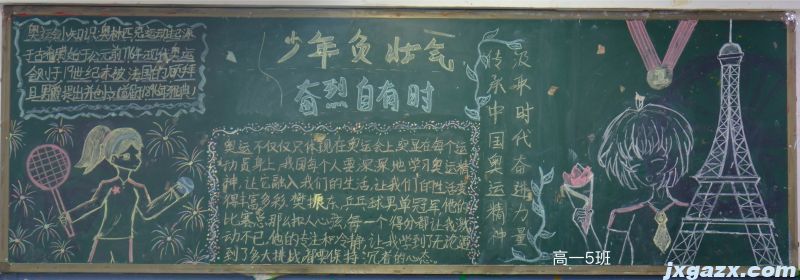 奥运会小知识:奥林匹克运动起源
于古希腊,始于公元前776年,现代奥运
会则于19世纪末被法国的顾拜
旦男爵提出并创立
少年负壮气
奋烈自有时
奥运不仅仅只体现在奥运会上,突显在每个运
动员身上,我国每个人要深深地学习奥运精
神,让它融入我们的生活,让我们的生活变
得丰富多彩,樊振东,乒乓球男单冠军,他们
比赛是那么扣人心弦,每一个得分都让我激
动不已,他的专注和冷静,让我学到了无论遇
到了多大挑战都要保持沉着的心态。
汲取时代奋进力量
传承中国奥运精神
高一5班
jxgazx.com